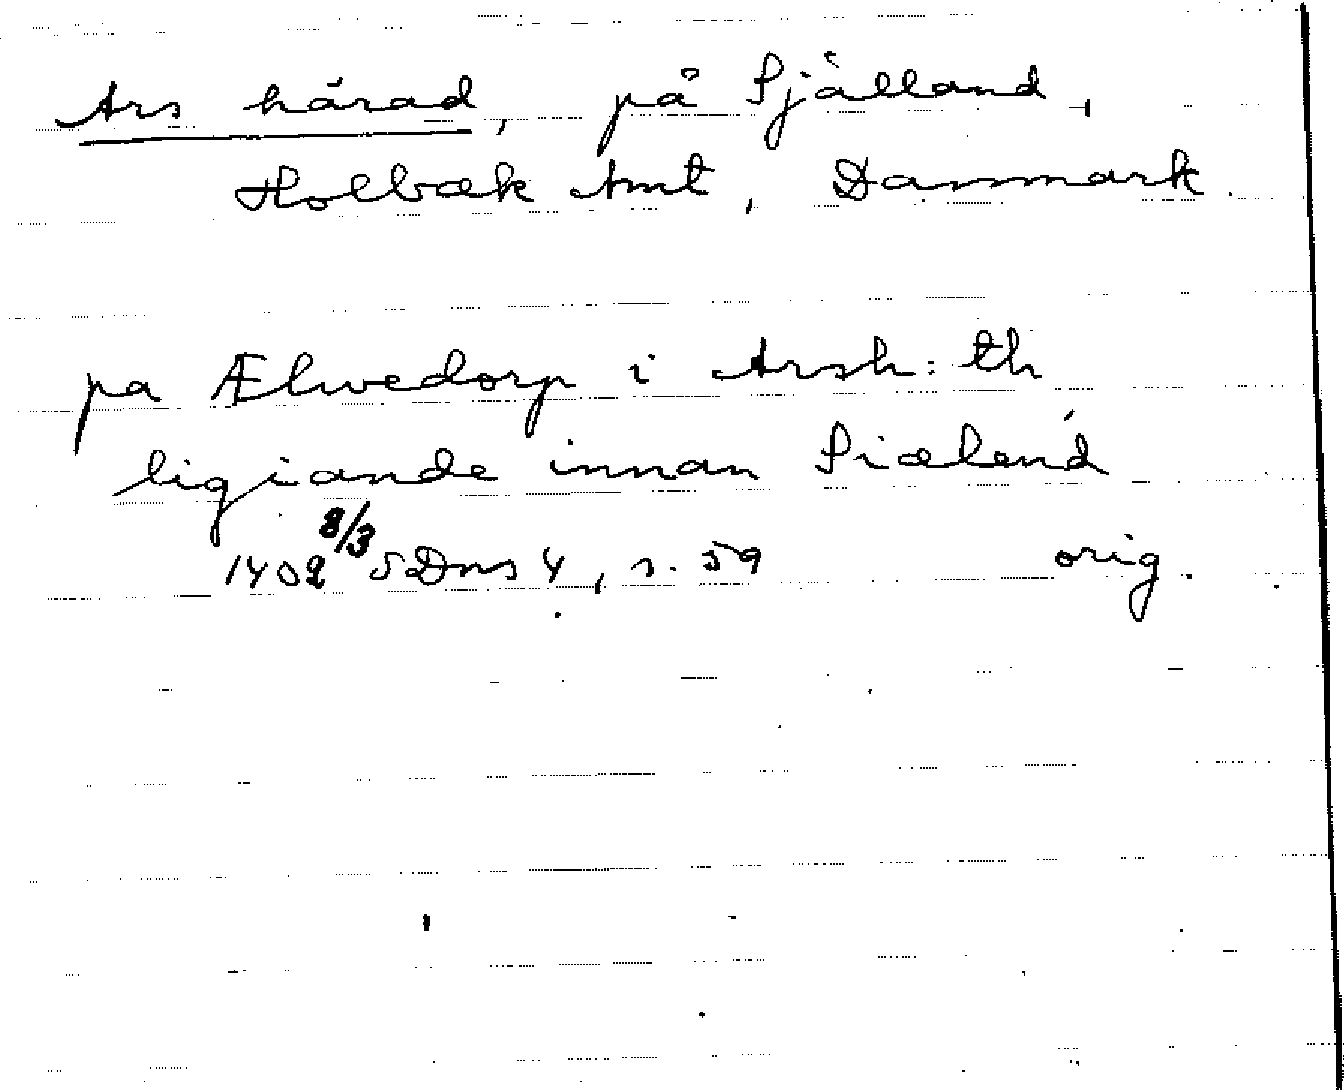 Ars härad, på Själland,
Holbæk Amt, Danmark.
pa Ælwedorp i Arsh: th
ligiande innan Siælend
1402 8/3 SDns 4, s. 59 orig.